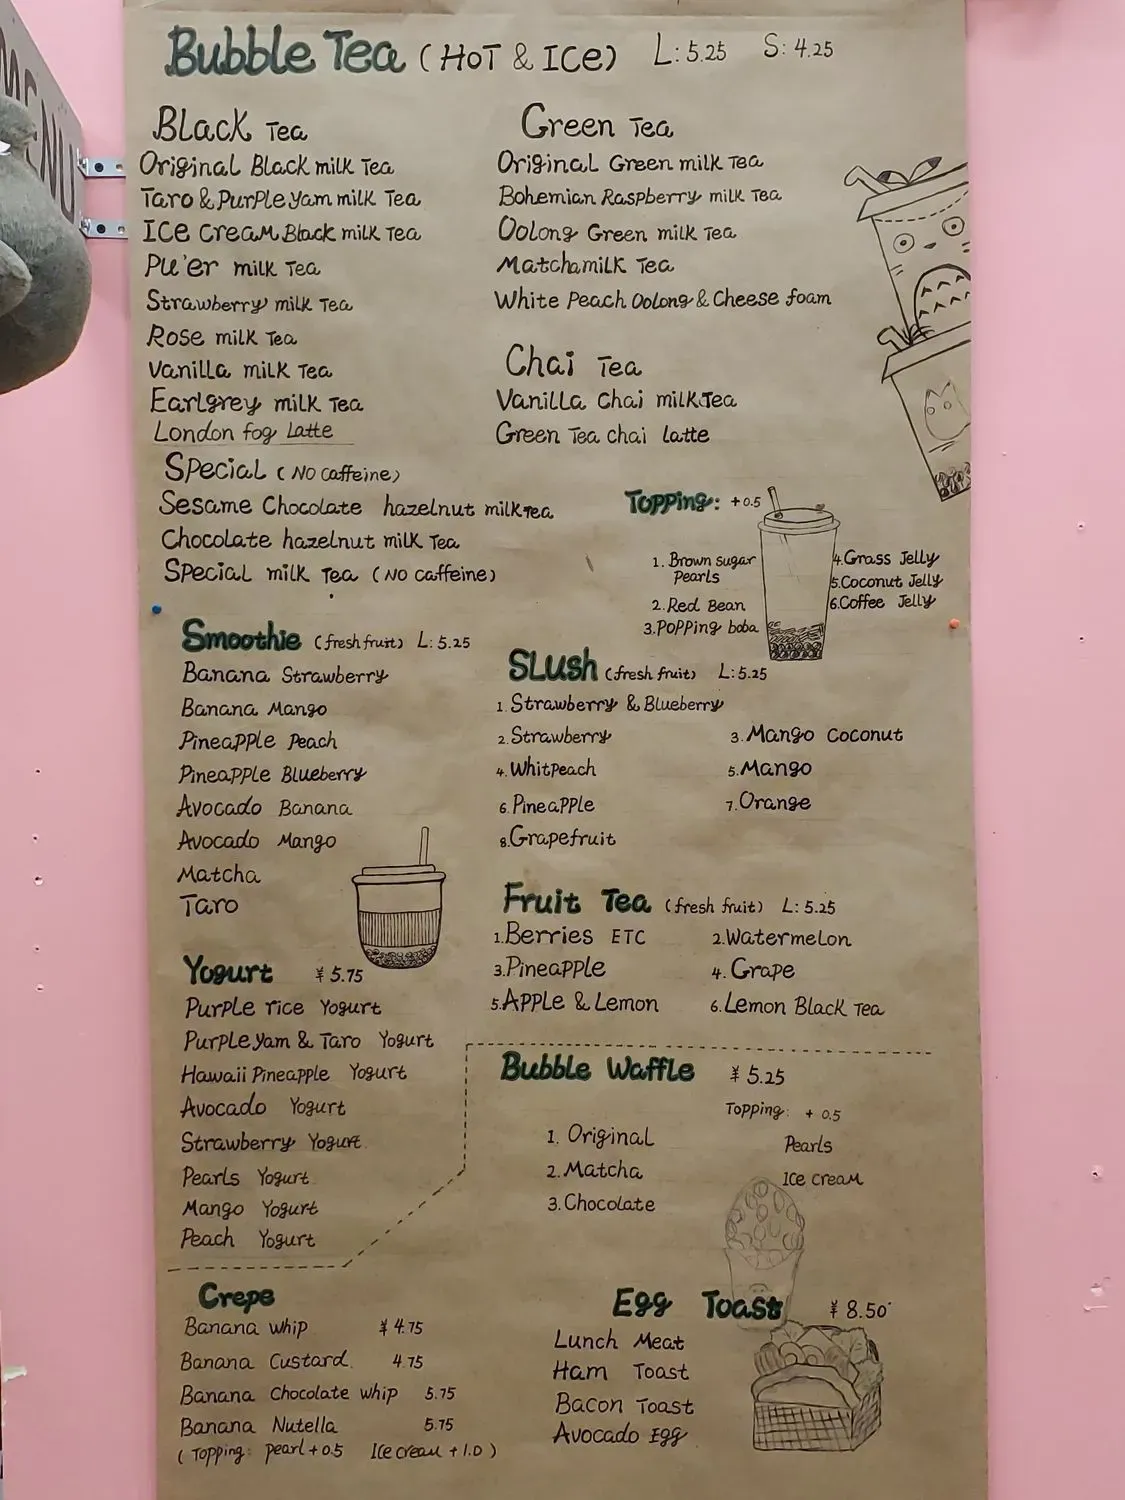 MENU
Bubble Tea (HOT & ICE) L: 5.25 S: 4.25
Black Tea
Original Black milk Tea
Taro & Purple yam milk Tea
Ice cream Black milk Tea
Pu'er milk Tea
Strawberry milk Tea
Rose milk Tea
Vanilla milk Tea
Earlgrey milk Tea
London fog Latte
Green Tea
Original Green milk Tea
Bohemian Raspberry milk Tea
Oolong Green milk Tea
Matcha milk Tea
White Peach Oolong & Cheese foam
Chai Tea
Vanilla Chai milk Tea
Green Tea chai latte
Special (No caffeine)
Sesame Chocolate hazelnut milk Tea
Chocolate hazelnut milk Tea
Special milk Tea (No caffeine)
Topping: +0.5
1. Brown sugar
Pearls
2. Red Bean
3. Popping boba
4. Grass Jelly
5. Coconut Jelly
6. Coffee Jelly
Smoothie (fresh fruit) L: 5.25
Banana Strawberry
Banana Mango
Pineapple Peach
Pineapple Blueberry
Avocado Banana
Avocado Mango
Matcha
Taro
Slush (fresh fruit) L: 5.25
1. Strawberry & Blueberry
2. Strawberry 3. Mango Coconut
4. WhitPeach 5. Mango
6. Pineapple 7. Orange
8. Grapefruit
Fruit Tea (fresh fruit) L: 5.25
1. Berries ETC 2. Watermelon
3. Pineapple 4. Grape
5. Apple & Lemon 6. Lemon Black Tea
Yogurt ¥ 5.75
Purple rice Yogurt
Purple yam & Taro Yogurt
Hawaii Pineapple Yogurt
Avocado Yogurt
Strawberry Yogurt
Pearls Yogurt
Mango Yogurt
Peach Yogurt
Bubble Waffle ¥ 5.25
Topping: + 0.5
Pearls
Ice cream
1. Original
2. Matcha
3. Chocolate
Crepe
Banana whip ¥ 4.75
Banana Custard 4.75
Banana Chocolate whip 5.75
Banana Nutella 5.75
(Topping: pearl + 0.5 Ice cream + 1.0)
Egg Toast ¥ 8.50
Lunch Meat
Ham Toast
Bacon Toast
Avocado Egg